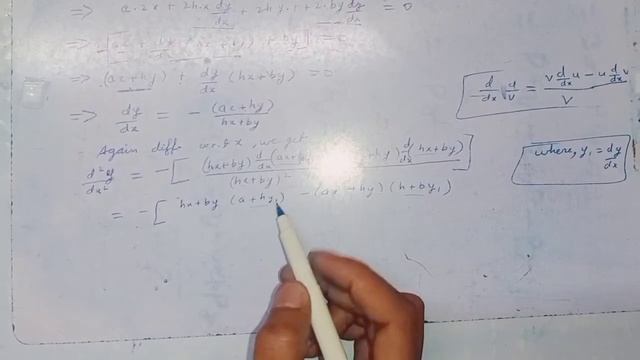 => a.2x + 2h.x dy/dx + 2hy.1 + 2.by dy/dx = 0
=>
=> (ax+hy) + dy/dx (hx+by) = 0
=> dy/dx = - (ax+hy)/(hx+by)
Again diff w.r.t x, we get
d²y/dx² = - [ (hx+by) d/dx (ax+ hy) d/dx (hx+by) / (hx+by)² ]
= - [ hx+by (a+hy₁) - (ax+hy) (h+by₁)
d/dx u/v = v d/dx u - u d/dx v / v
where, y₁ = dy/dx